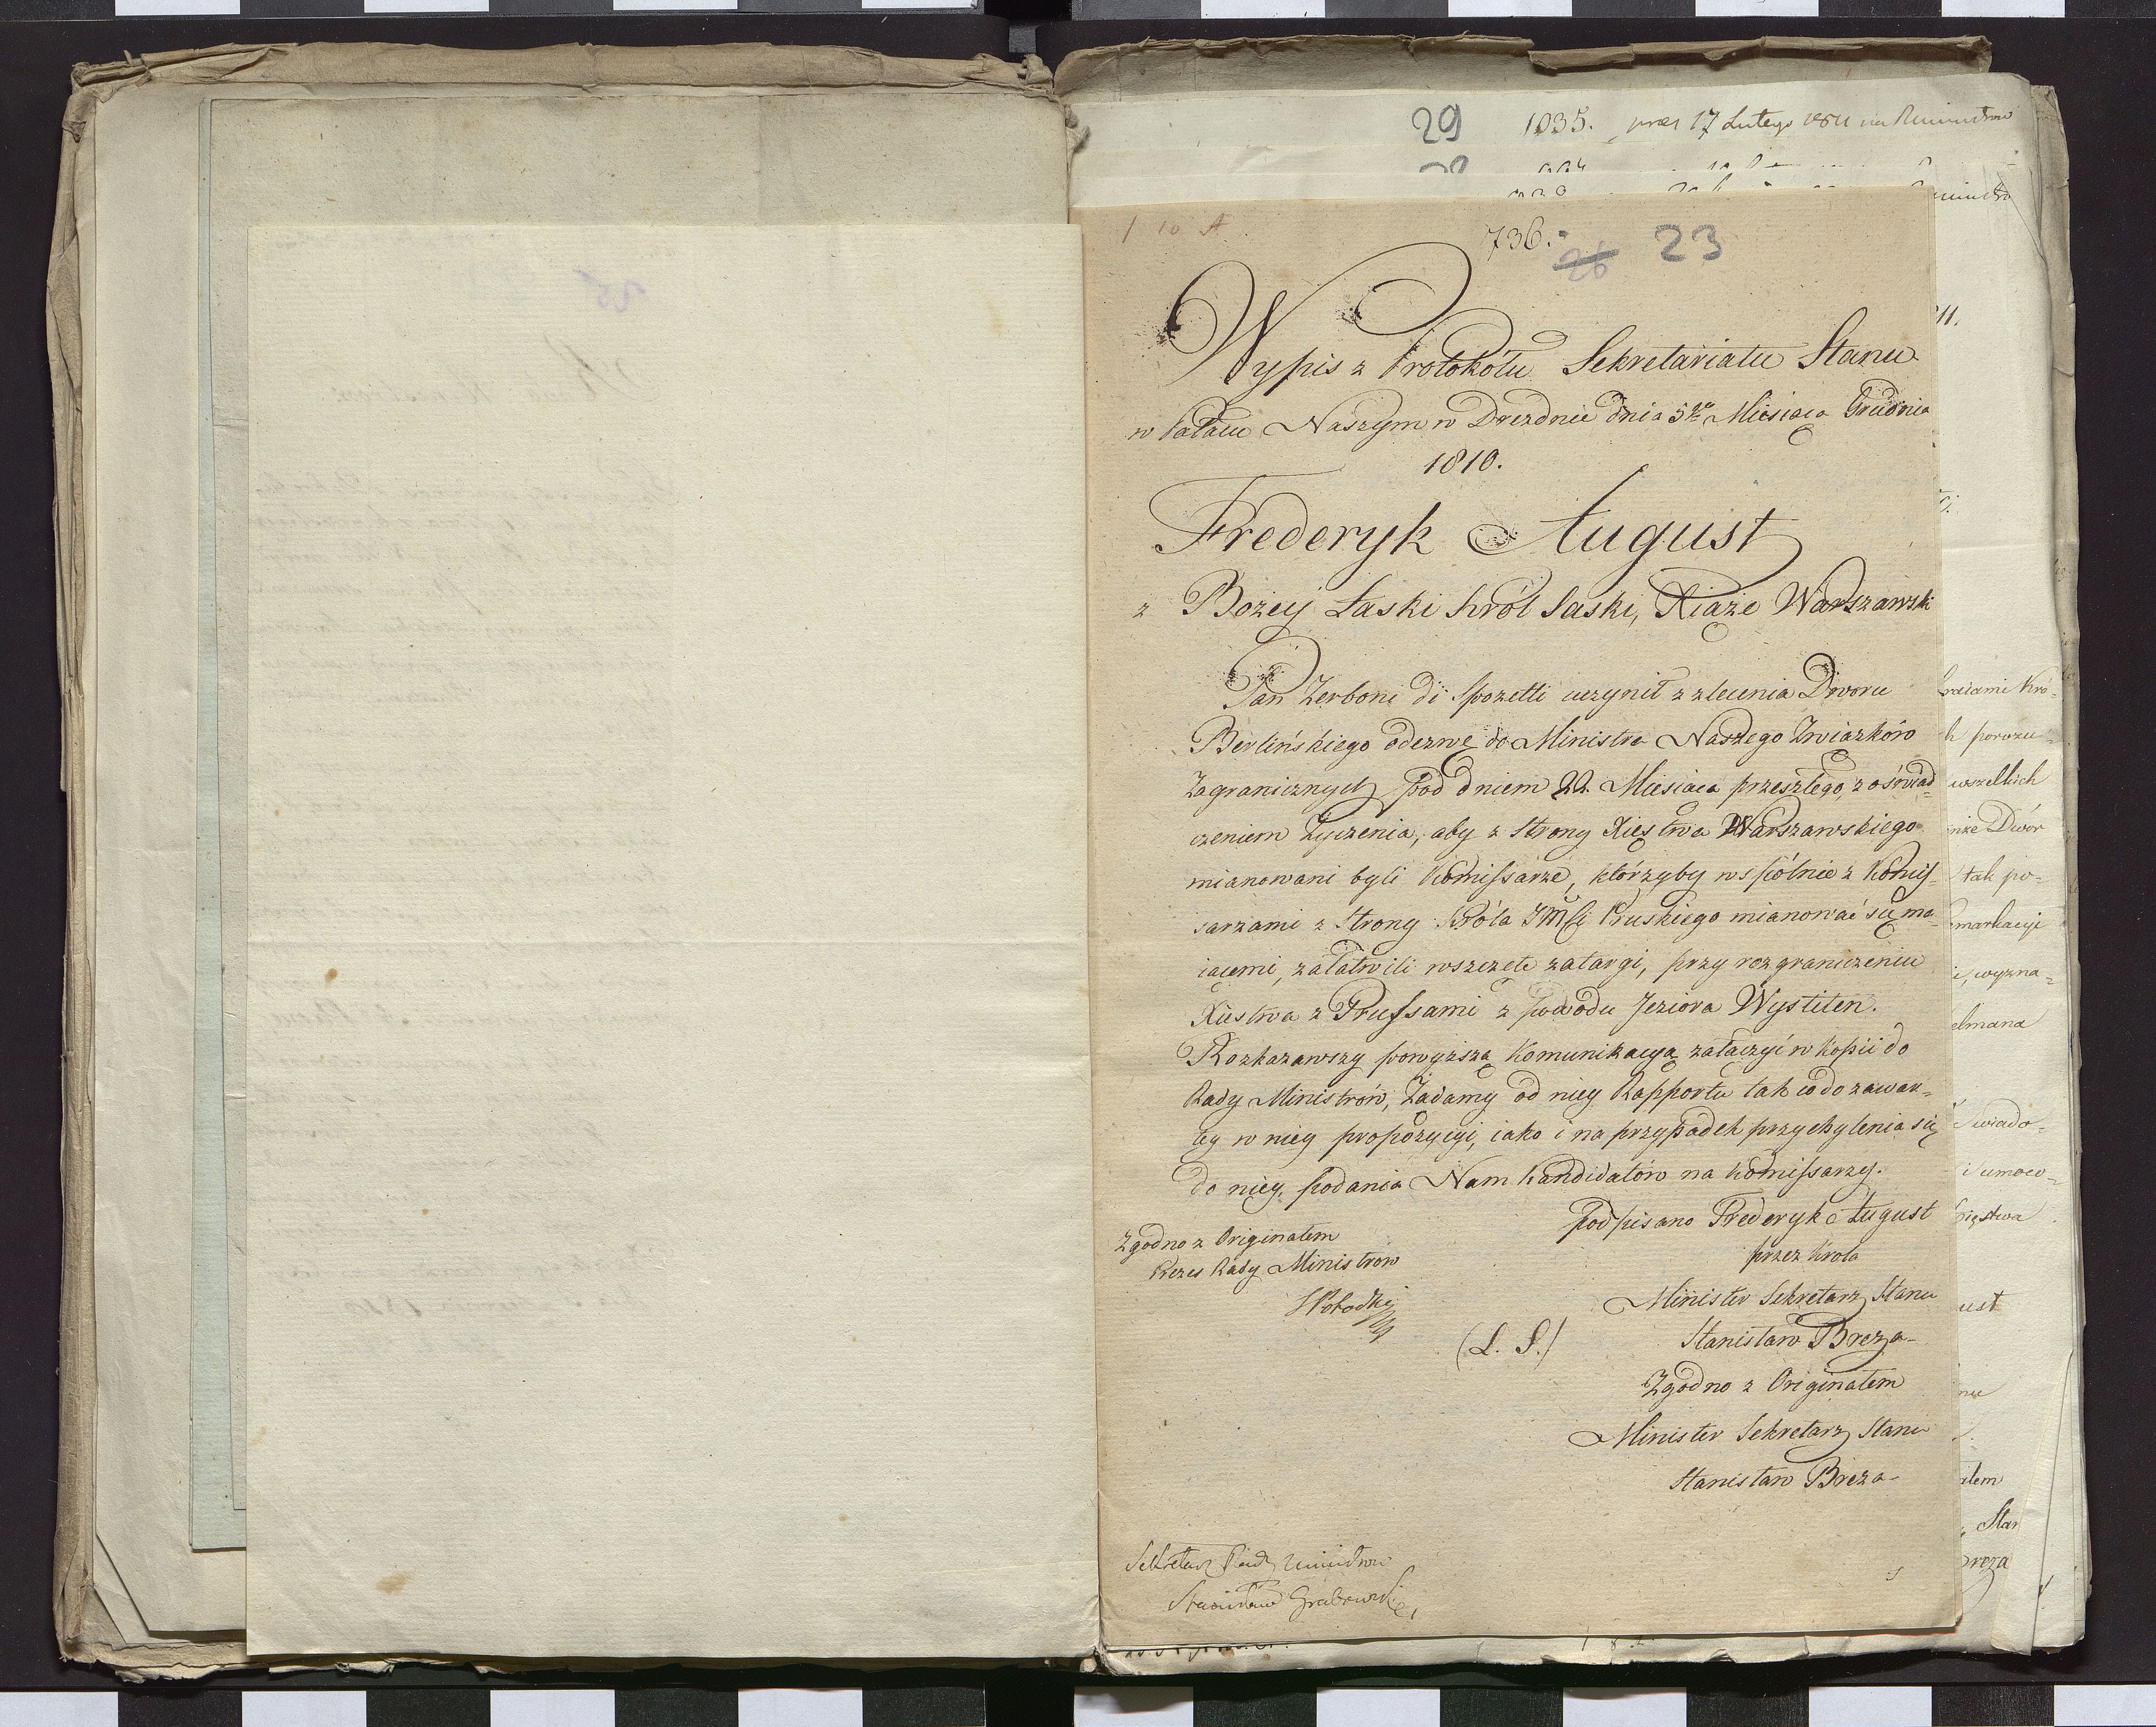 29 1035. pres 17 Lutego 1811 na R ministrow
1 10 A
736. 26 23
Wypis z Protokółu Sekretariatu Stanu
w Pałacu Naszym w Dreznie dnia 5go Miesiąca Grudnia
1810.
Frederyk August
z Bożey Łaski Król Saski, Xiąże Warszawski
Pan Zerboni di Spozetti uczynił z zlecenia Dworu
Berlińskiego odezwę do Ministra Naszego Związków
Zagranicznych pod dniem 22. Miesiąca przeszłego, z oświad=
czeniem życzenia, aby z Strony Xięstwa Warszawskiego
mianowani byli Komissarze, którzyby wspólnie z Komis=
sarzami z Strony Króla JMCi Pruskiego mianować się ma=
iącemi, załatwili wszczęte zatargi, przy rozgraniczeniu
Xięstwa z Prussami z powodu Jeziora Wystiten.
Rozkazawszy powyższą Komunikacyą załączyć w kopii do
Rady Ministrów, Żądamy od niey Rapportu tak co do zawar=
tey w niey propozycyi, iako i na przypadek przychylenia się
do niey, podania Nam Kandidatów na Komissarzy.
podpisano Frederyk August
Zgodno z Originałem
przez Króla
Prezes Rady Ministrow
Minister Sekretarz Stanu
SPotocki
(L. S.) Stanisław Breza
Zgodno z Originałem
Minister Sekretarz Stanu
Stanisław Breza
Sekretarz Rady Ministrow
Stanisław Grabowski
11.
wszelkich
Dwór
tak po=
wyzna=
ust
Star